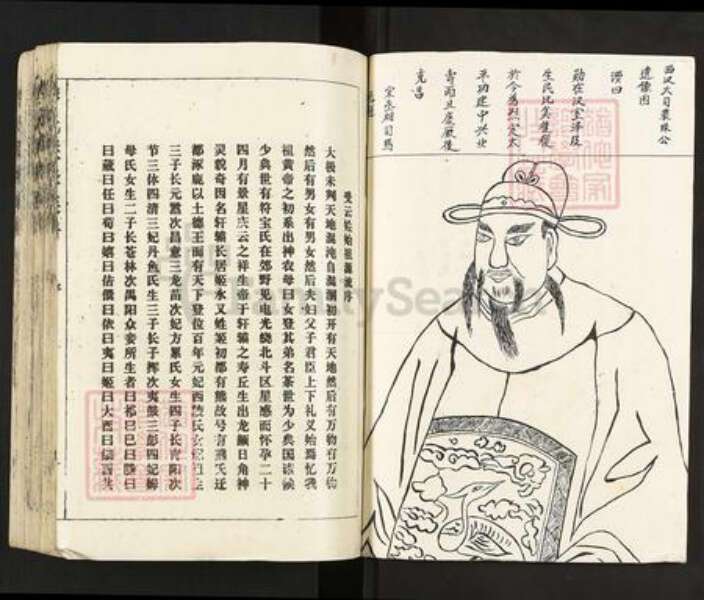 西汉大司农珠公
遗像图
赞曰
勋在汉室泽及
生民比莫崔俊
于今为烈定太
平功建中兴业
寿而且康厥后
克昌
宋丞相司马
受云姓始祖源流序
大极未判天地混沌自混沌初开有天地然后有万物有万物
然后有男女有男女然后夫妇父子君臣上下礼义始焉忆我
祖黄帝之初系出神农母曰女登其弟名荼世为少典国诸候
少典世有符宝氏在郊野见电光绕北斗区星感而怀孕二十
四月有景星庆云之祥生帝于轩辕之寿丘生出龙颜日角神
灵貌奇因名轩辕长居姬水又姓姬初都有熊故号有熊氏迁
都涿鹿以土德王而有天下登位百年元妃西陵氏女
三子长元嚣次昌意三龙苗次妃方累氏女生四子长青阳次
节三休四清三妃丹鱼氏生三子长子挥次夷鼓三彭四妃嫫
母氏女生二子长苍林次禺阳众妾所生者曰祁曰巳曰滕曰
曰葴曰任曰荀曰嬉曰佶儇曰依曰夷曰姬曰大酉曰